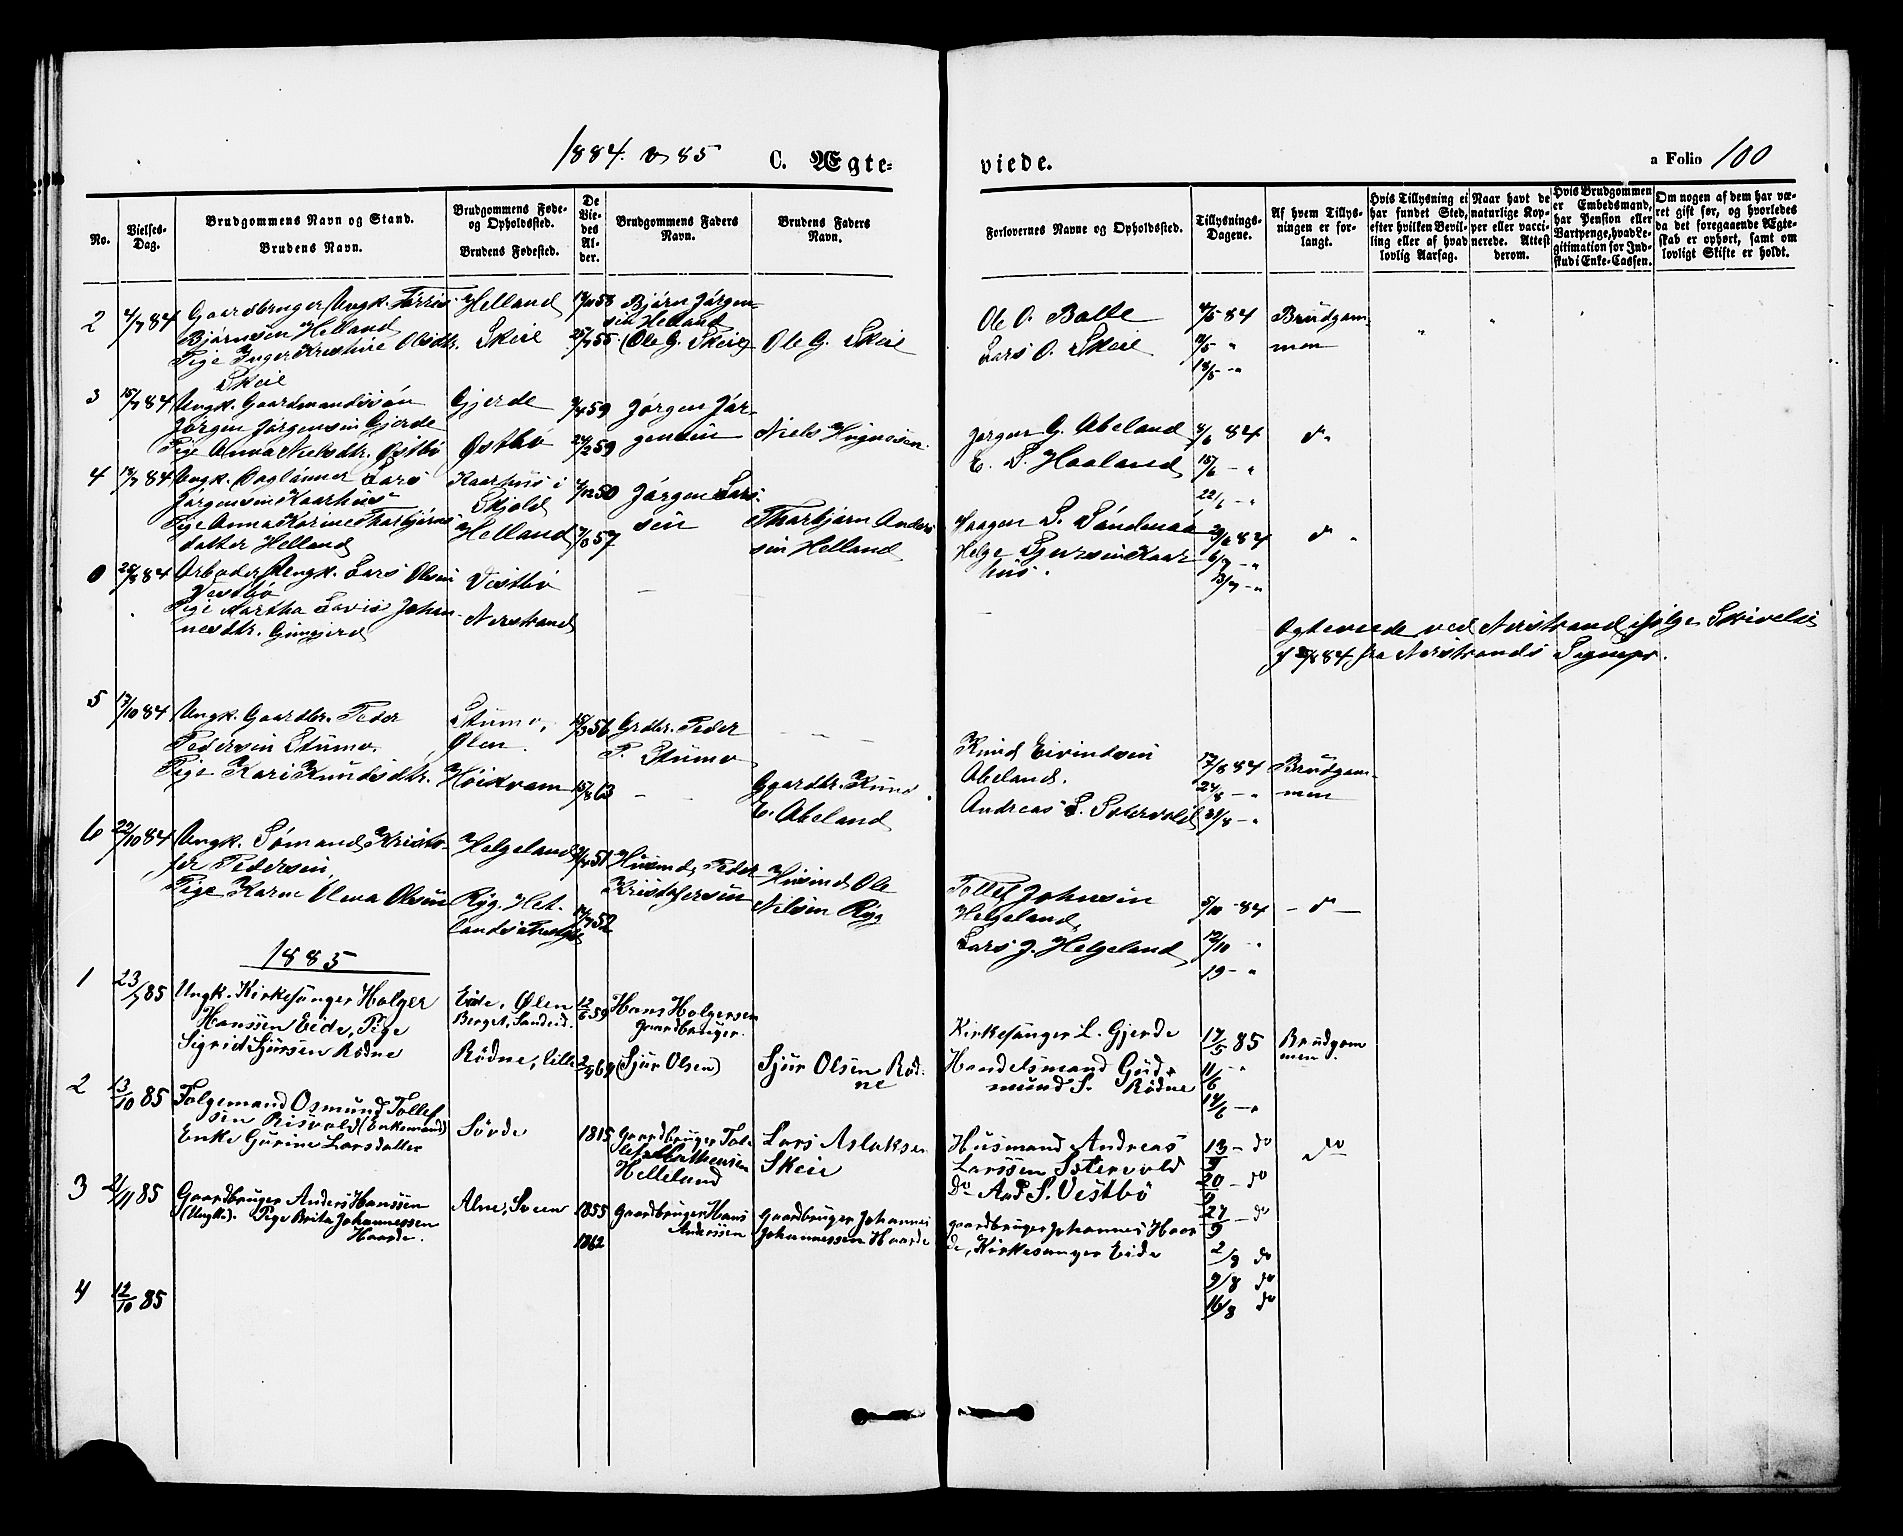 1884. & 85 C. Ægte-
viede.
a Folio 100
No.
Vielses-
Dag.
Brudgommens Navn og Stand.
Brudens Navn.
Brudgommens Føde-
og Opholdssted.
Brudens Fødested.
De
Vie-
des
Al-
der.
Brudgommens Faders
Navn.
Brudens Faders
Navn.
Forlovernes Navne og Opholdssted.
Tillysnings-
Dagene.
Af hvem Tillys-
ningen er for-
langt.
Hvis Tillysning ei
har fundet Sted,
efter hvilken Bevil-
ling eller af hvad
lovlig Aarsag.
Naar havt de
naturlige Kop-
per eller vacci-
nerede. Attest
derom.
Hvis Brudgommen
er Embedsmand,
har Pension eller
Vartpenge, hvad Le-
gitimation for Ind-
skud i Enke-Cassen.
Om nogen af dem har væ-
ret gift før, og hvorledes
da det foregaaende Ægte-
skab er ophørt, samt om
lovligt Skifte er holdt.
2 4/7 84 Gaardbruger Ungk.
Bjørnsen Helland
Pige Inger Kristine Olsdtr.
Skeie
Helland
Skeie
Bjørn Jørgen-
sen Helland
(Ole G. Skeie)
Ole G. Skeie
Ole O. Balle
Lars O. Skeie
4/5 84
18/5 "
Brudgom-
men
3 15/7 84 Ungk. Gaardmandssøn
Jørgen Jørgensen Gjerde
Pige Anna Nielsdtr. Østbø
Gjerde
Østbø
24/2 59
Jørgen Jør-
gensen
Niels
Jørgen G. Abeland
E. S. Haaland
8/6 84
15/6 - "
22/6 - "
do
4 84 Ungk. Daglønner Lars
Jørgensen Kaarhus
Pige Anna Karine Thorbjørns
datter Helland
Kaarhus i
Skjold
Helland
Jørgen Lars-
sen
Thorbjørn Anders
sen Helland
Haagen S.
Helge Sjursen Kaar
hus.
29/6 84
6/7 - "
13/7 - "
do
0 84 Arbeider Ungk. Lars Olsen
Vestbø
Pige Martha Johan-
nesdtr.
Vestbø
Nerstrand
Ægteviede ved Nerstrand ifølge Skrivelse
fra Nerstrands Sognepr.
5 17/10 84 Ungk. Gaardbr. Peder
Pedersen Stumo.
Pige Kari Knudsdtr.
Stumo,
Ølen.
Høikvam
15/8 63
Grdbr. Peder
P. Stumo
Gaardbr. Knud
E. Abeland
Knud Eivindsen
Abeland.
Andreas L.
17/8 84
24/8 - "
31/8 - "
Brudgom-
men
6 84 Ungk. Sømand Kristo-
fer Pedersen,
Pige Karen Olena Olsen
Helgeland
Ryg. Het-
Husmd. Peder
Kristofersen
Husmd. Ole
Nilsen Ryg
Tollef Johnsen
Helgeland
Lars J. Helgeland
5/10 84
12/10 "
19 - "
- do -
1885
1 23/7 85 Ungk. Kirkesanger Holger
Hanssen Eide, Pige
Sigrid Sjursen Rødne
Eide, Ølen
Berget, Sandeid.
Rødne, lille
12/6 59
Hans Holgersen
Gaardbruger.
(Sjur Olsen)
Sjur Olsen Rød-
ne
Kirkesanger L. Gjerde
Handelsmand Gud-
mund S. Rødne
17/5 85
11/6 "
14/6 - "
Brudgom
men.
2 13/10 85 Følgemand Osmund Tollef
sen Risvold (Enkemand)
Enke Gurine Larsdatter
Søvde
1815
Gaardbruger Tol-
lef
Helleland
Lars Aslaksen
Skeie
Husmand Andreas
Larssen
do And S. Vestbø
13/9 - do
20/9 - do
27/9 - do
do
3 21/11 85 Gaardbruger Anders Hanssen
(Ungk). Pige Brita Johannessen
Haarde.
Alne, Sveen
1855
1862
Gaardbruger Hans
Anderssen
Gaardbruger Johannes
Johannessen Haarde
Gaardbruger Johannes Haar
de, Kirkesanger Eide
2/8 do
9/8 do
16/8 do
4 12/10 85